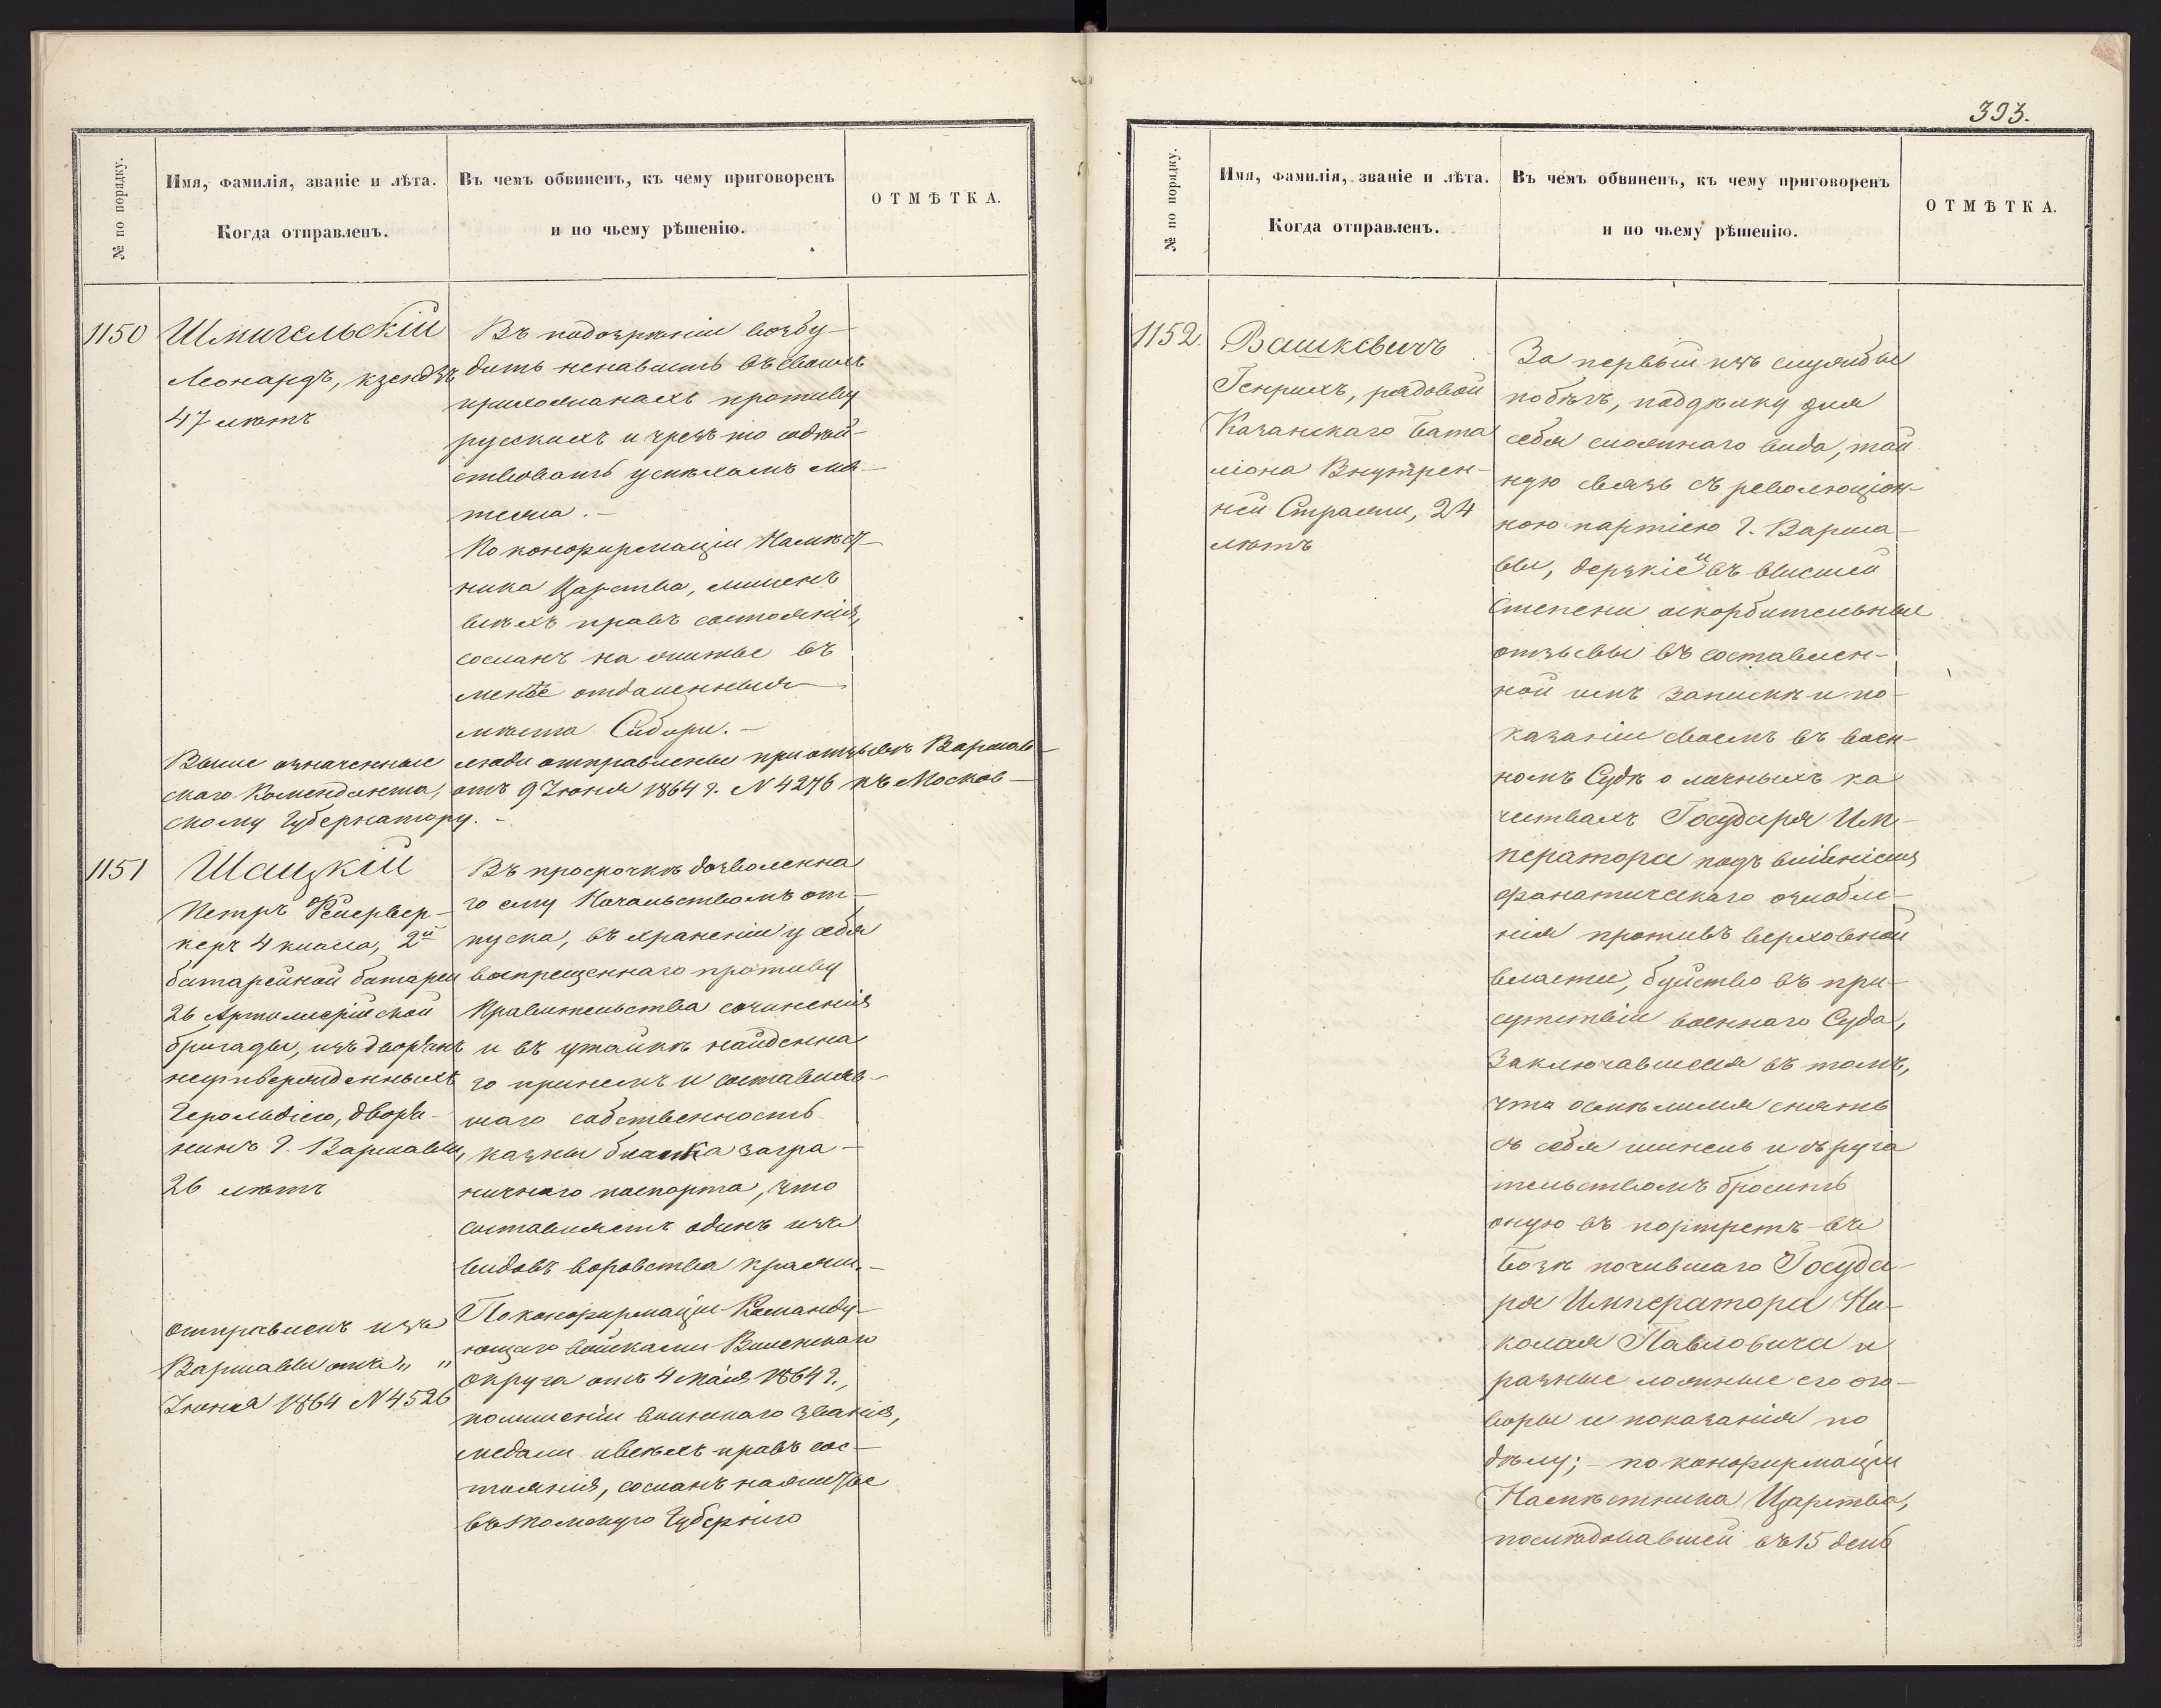 № по порядку.
Имя, фамилія, званіе и лѣта.
Когда отправленъ.
Въ чемъ обвиненъ, къ чему приговоренъ
и по чьему рѣшенію.
ОТМѢТКА.
1150
Шмигельскій
Леонардъ, ксендзъ
47 лѣтъ
Въ подозрѣніи возбу-
дить ненависть въ своихъ
прихожанахъ противу
русскихъ и чрезъ то содѣй-
ствовать успѣхамъ мя-
тежа. -
По конфирмаціи Намѣст-
ника Царства, лишенъ
всѣхъ правъ состоянія,
сосланъ на житье въ
менѣе отдаленныя
мѣста Сибири. -
Выше означенные люди отправлены при отзывѣ Варшав-
скаго Коменданта, отъ 9 Іюня 1864 г. N 4276 къ Москов-
скому Губернатору. -
1151
Шацкій
Петръ Фейервер-
керъ 4 класса, 2й
батарейной батареи
26 Артиллерійской
бригады, изъ дворянъ
неутвержденныхъ
Герольдіею, дворя-
нинъ г. Варшавы,
26 лѣтъ
Отправленъ изъ
Варшавы отъ " "
Іюня 1864 N 4526
Въ просрочкѣ дозволенна
го ему Начальствомъ от-
пуска, въ храненіи у себя
воспрещеннаго противу
Правительства сочиненія
и въ утайкѣ найденна
го принемъ и составляв-
шаго собственность
казны бланка загра-
ничнаго паспорта, что
составляетъ одинъ изъ
видовъ воровства кражи. -
По конфирмаціи Команду-
ющаго войсками Виленскаго
округа отъ 4 Маія 1864 г.,
полишеніи воинскаго званія,
медали и всѣхъ правъ сос-
тоянія, сосланъ на житье
въ Томскую Губернію
393.
№ по порядку.
Имя, фамилія, званіе и лѣта.
Когда отправленъ.
Въ чемъ обвиненъ, къ чему приговоренъ
и по чьему рѣшенію.
ОТМѢТКА.
1152.
Вашкевичъ
Генрихъ, рядовой
Казанскаго бата
ліона Внутрен-
ней Стражи, 24
лѣтъ
За первый изъ службы
побѣгъ, поддѣлку для
себя сложнаго вида, тай
ную связь съ революціон-
ною партіею г. Варша-
вы, дерзкіе и въ высшей
степени оскорбительные
отзывы въ составлен-
ной имъ запискѣ и по-
казаніи своемъ въ воен-
номъ Судѣ о личныхъ ка
чествахъ Государя Им-
ператора подъ вліяніемъ
фанатическаго озлобле-
нія противъ верховной
власти, буйство въ при-
сутствіи военнаго Суда,
заключавшееся въ томъ,
что осмѣлился снять
съ себя шинель и съ руга
тельствомъ бросить
оную въ портретъ въ
Бозѣ почившаго Госуда-
ря Императора Ни-
колая Павловича и
разные ложные его ого-
воры и показанія по
дѣлу; - по конфирмаціи
Намѣстника Царства,
послѣдовавшей въ 15 день